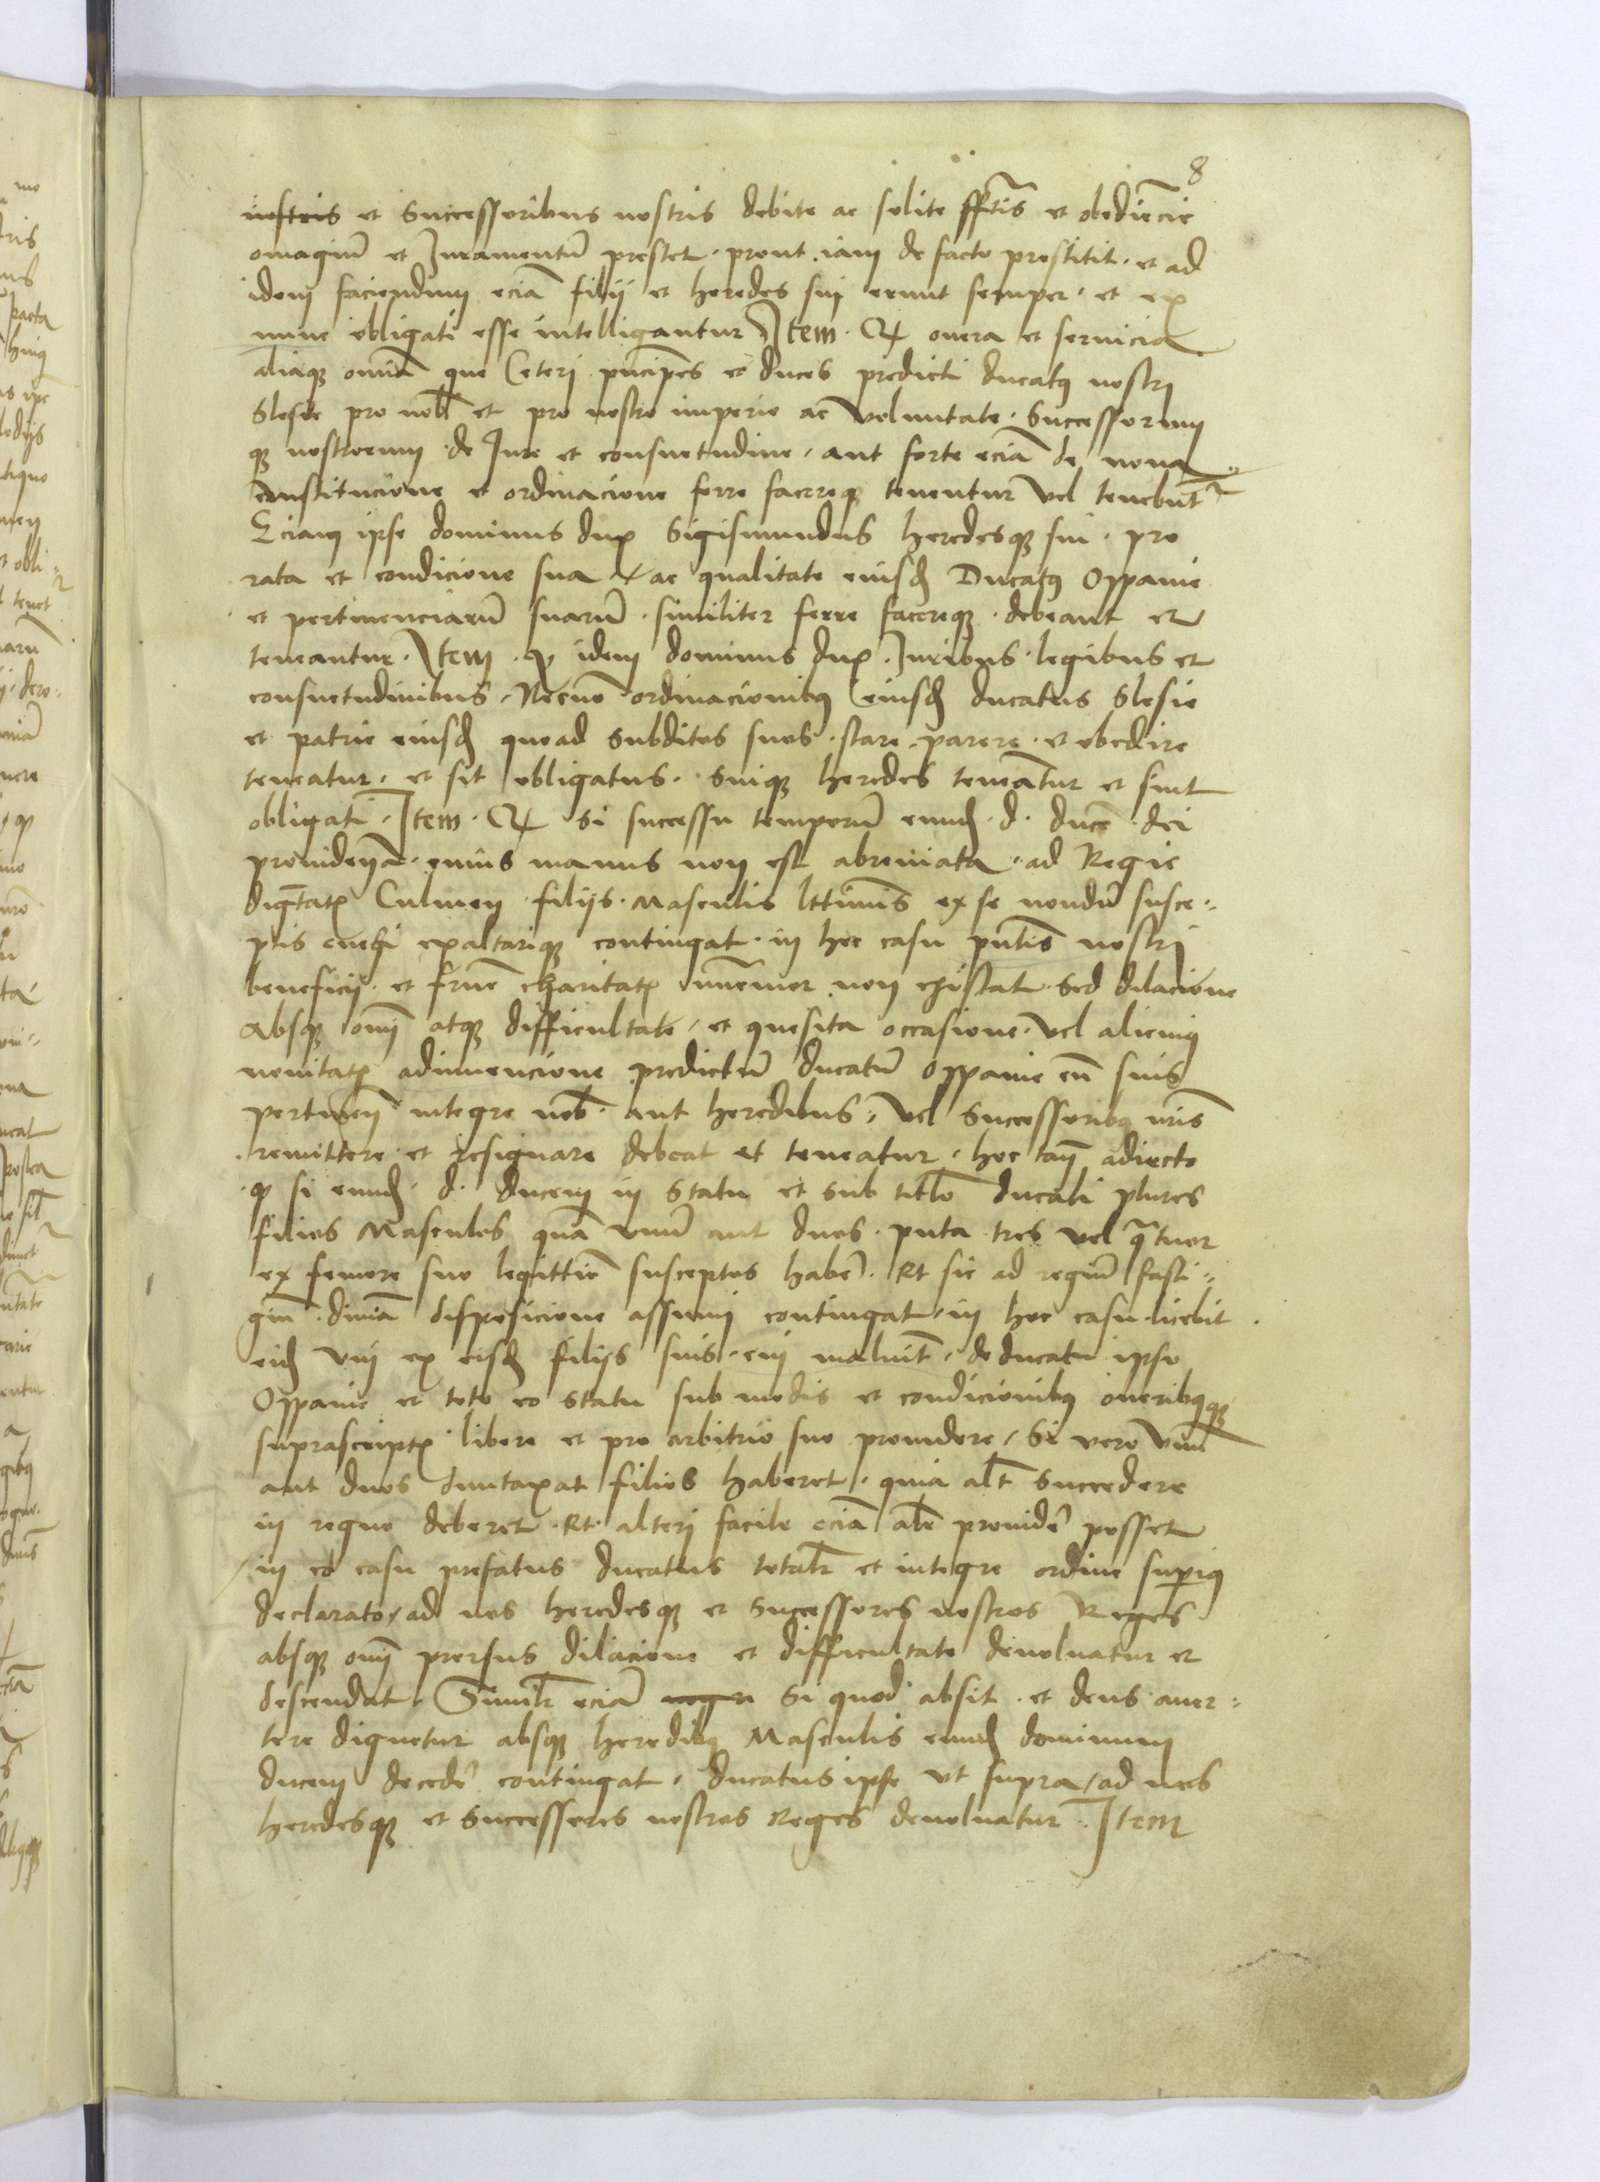 8
nostris et Successoribus nostris debite ac solite ffītis et obedīecie
omagiū et Juramentū prestet · prout iam de facto prestitit · et ad
idem faciendum eciā filij et heredes sui erunt semper · et ex
nunc obligati esse intelligantur Item · Q onera et seruicia
aliaque om̄ia que Ceteri pn̄cipes et duces predicti ducatus nostri
Slesie pro nob̄ et pro nostro imperio ac voluntate · Successorum
que nostrorum · de Jure et consuetudine · aut forte eciā de noua
constitucione et ordinacione ferre facereque tenentur vel tenebunt̄
Eciam ipse dominus dux Sigismundus heredesque sui · pro
rata et condicione sua ac qualitate eiusd Ducatus Oppauie
et pertinenciarū suarū · similiter ferre facereque · debeant et
teneantur · Item · q idem dominus dux · Juribus · legibus et
consuetudinibus · Necnō ordinacionibus eiusd ducatus Slesie
et patrie eiusd quoad Subditos suos · stare · parere · et obedire
teneatur · et sit obligatus · Suique heredes teneātur et sint
obligati · Item · Q Si successu temporū eund · d · ducē · dei
prouidencia · cuius manus non est abreuiata · ad Regie
dignitatis Culmen · filijs · Masculis lttimis ex se nondū susce-
ptis euehi exaltarique contingat · in hoc casu pn̄tis nostri
beneficij · et frn̄e charitatis immemor non existat · Sed dilacione
Absque omī atque difficultate · et quesita occasione · vel alicuius
nouitatis adinuencione predictū ducatū Oppauie cū suis
pertinen̄ integre nob̄ · aut heredibus · vel Successoribus nris̄
remittere · et resignare debeat et teneatur · hoc tam̄ adiecto
q si eund · d · ducem in Statu et Sub titlo ducali plures
filios Masculos quā vnū aut duos · puta tres vel quatuor
ex femore suo legittīe susceptos habē · Et sic ad regiū fasti-
giū diuīa disposicione assumi contingat · in hoc casu licebit
eid vni ex eisd filijs suis · cui maluit̄ · de ducatu ipso
Oppauie et toto eo statu sub modis et condicionibus oneribusque
suprascriptis libere et pro arbitrio suo prouidere · Si vero vnū
aut duos duntaxat filios haberet · quia alt̄ Succedere
in regno deberet · Et alteri facile eciā alr̄ prouidē posset
in eo casu prefatus ducatus totalr̄ et integre ordine superius
declarato / ad nos heredesque et Successores nostros Reges
absque omī prorsus dilacione et difficultate deuoluatur et
descendat · Similr̄ eciā Si quod absit · et deus auer-
tere dignetur absque heredibus Masculis eund dominum
ducem decedē contingat · ducatus ipse vt supra / ad nos
heredesque et Successores nostros Reges deuoluatur · Item